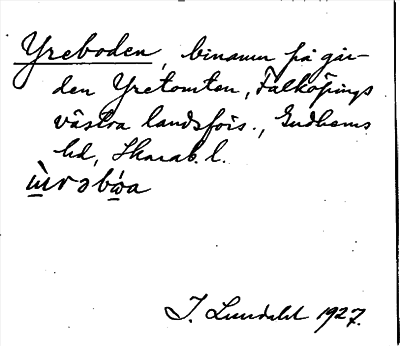 Yreboden, binamn på går-
den Yretomten, Falköpings
västra landsförs., Gudhems
hd, Skarab. l.
J. Lundahl 1927.